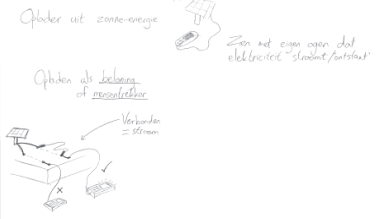 Oplader uit zonne-energie
Zien met eigen ogen dat
elektriciteit "stroomt/ontstaat"
Opladen als beloning
of mensentrekker
Verbonden
= stroom